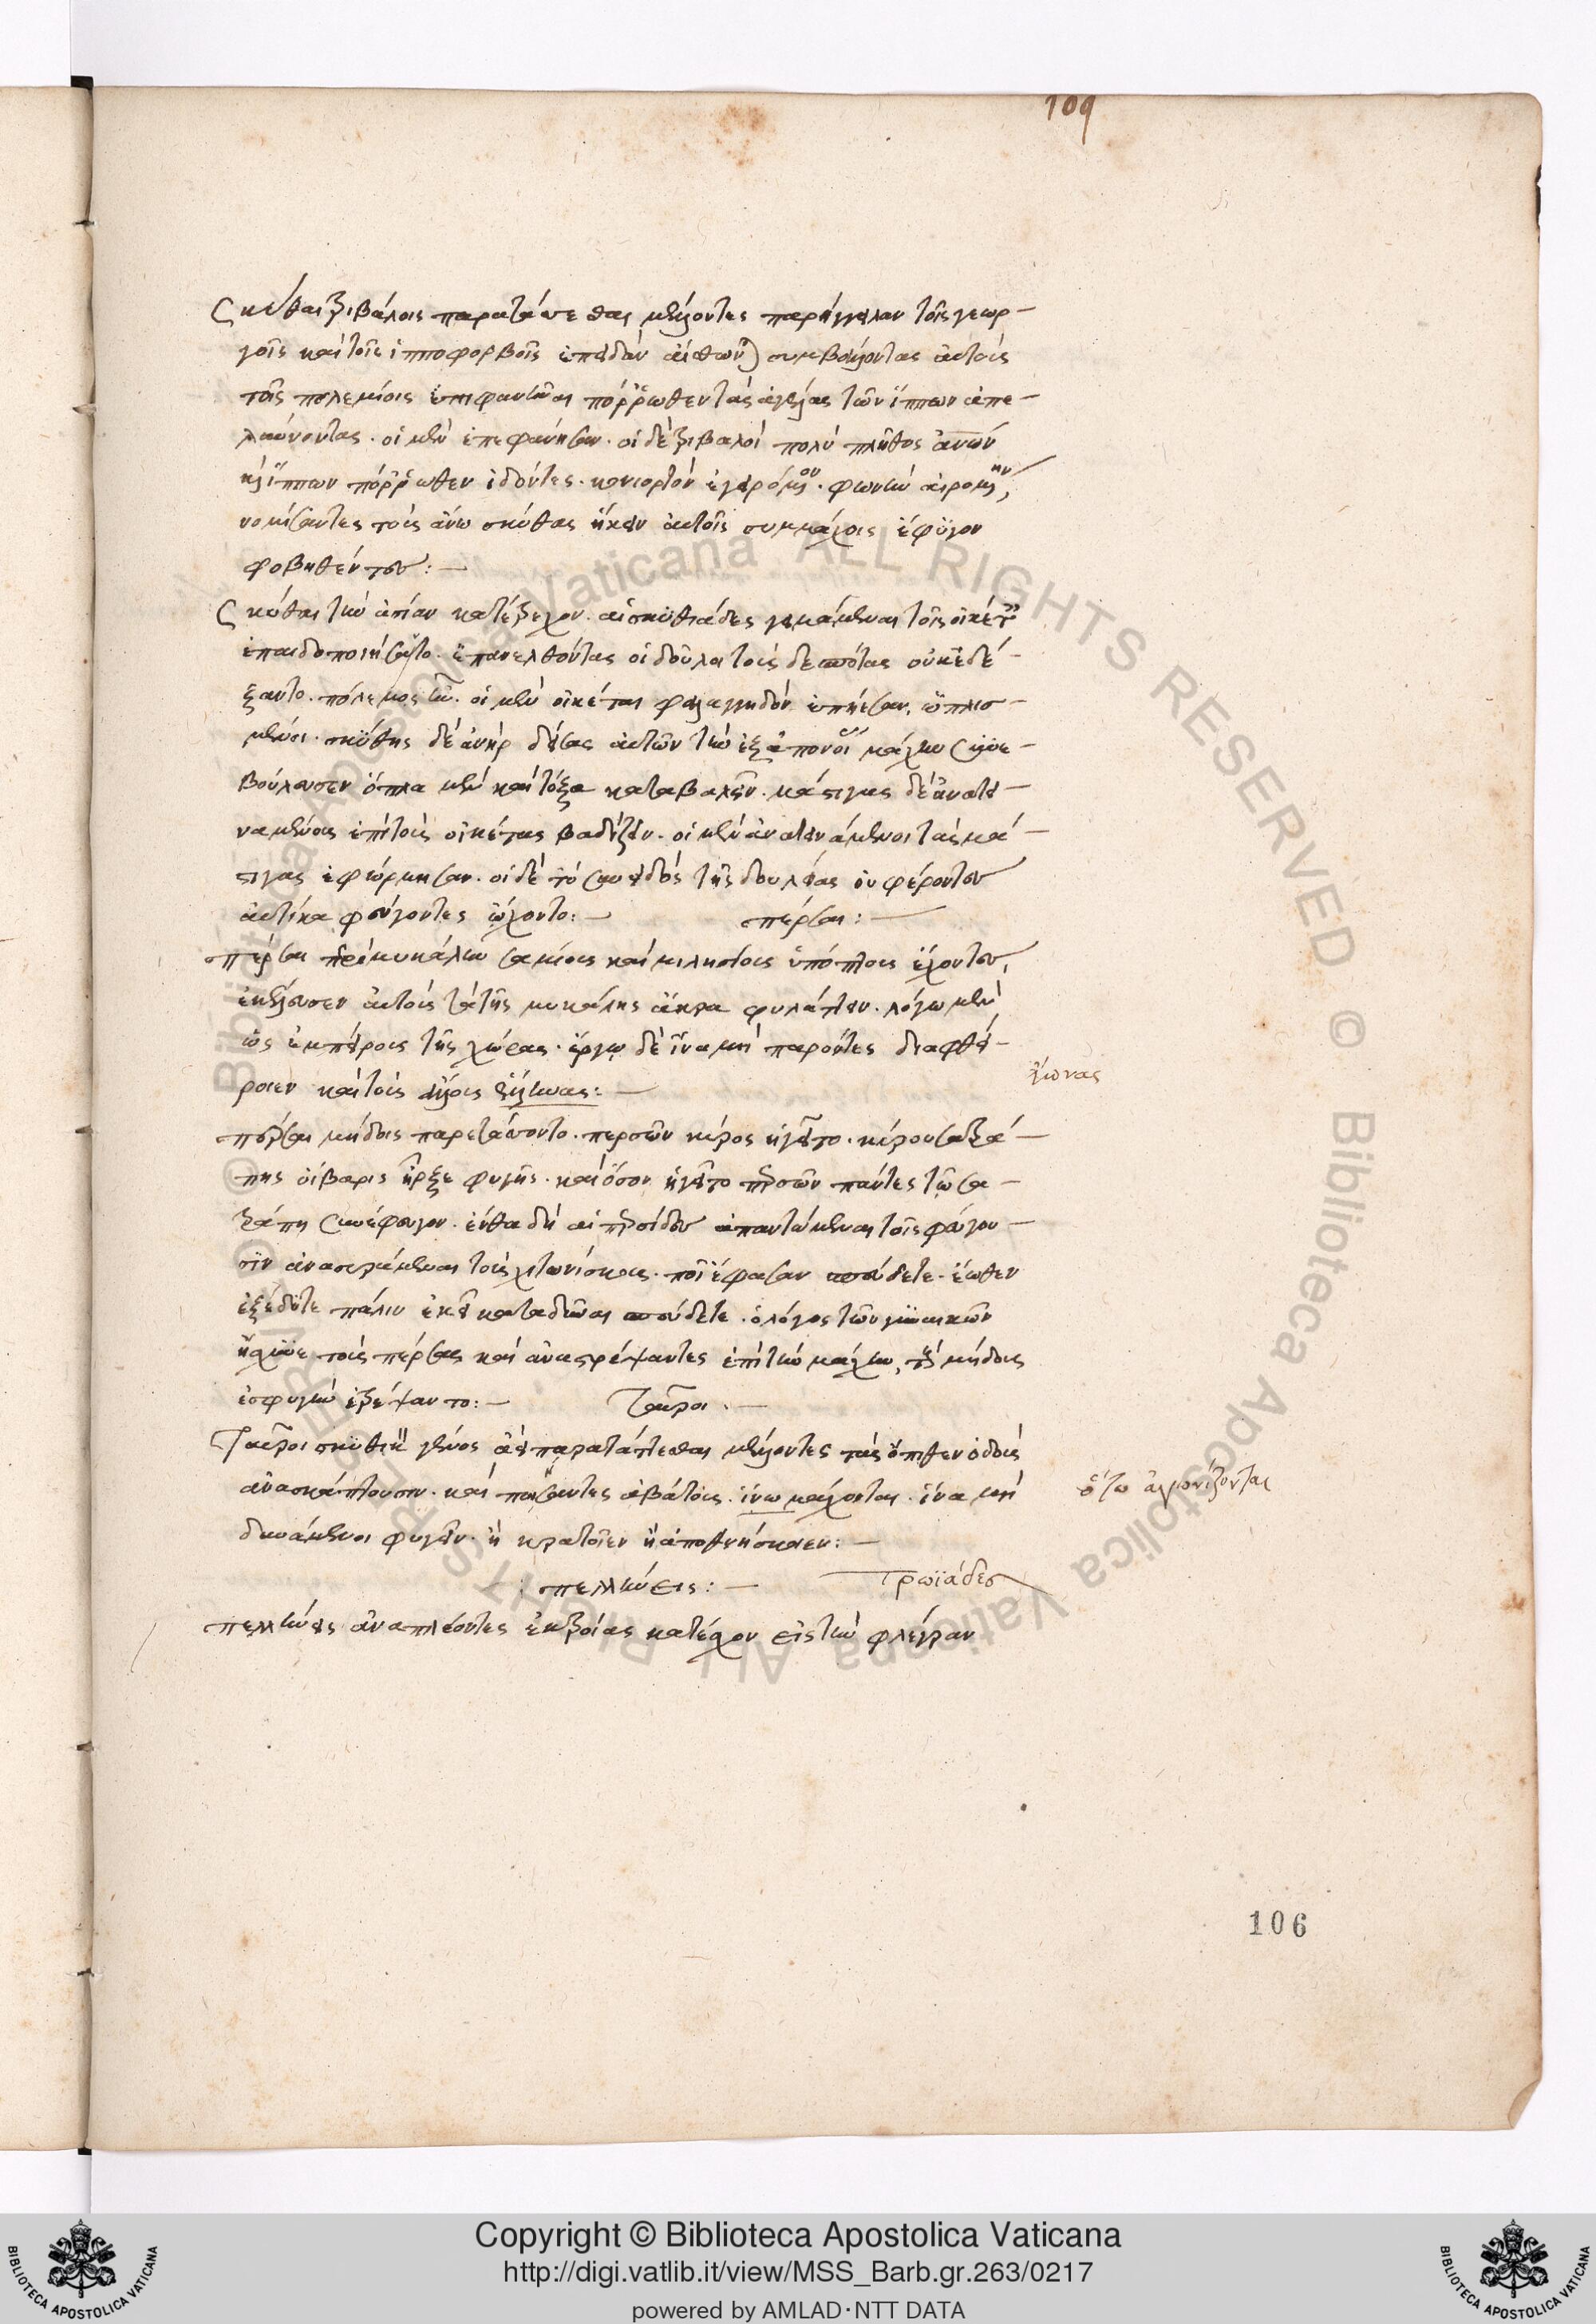 109
Σκύθαι τριβάλοις παρατάσσεσθαι μέλλοντες παρήγγειλαν τοῖς γεωρ-
γοῖς καὶ τοῖς ἱπποφορβοῖς ἐπειδὰν αἴσθωνται συμβάλλοντας αὐτοὺς
τοῖς πολεμίοις ἐπιφανῆναι πόρρωθεν τὰς ἀγέλας τῶν ἵππων ἀπε-
λαύνοντας. οἱ μὲν ἐπεφάνησαν. οἱ δὲ τριβαλοὶ πολὺ πλῆθος ἀνων
καὶ ἵππων πόρρωθεν ἰδόντες. κονιορτὸν ἐγειρόμενον. φωνὴν αἰρομένην,
νομίσαντες τοὺς ἄνω σκύθας ἥκειν αὐτοῖς συμμάχους ἔφυγον
φοβηθέντες:
Σκύθαι τὴν ἀσίαν κατέτρεχον. αἱ σκυθιάδες γειμάμεναι τοῖς οἰκέταις
ἐπαιδοποιήσαντο. ἐπανελθόντας οἱ δοῦλοι τοὺς δεσπότας οὐκ ἐδέ-
ξαντο. πόλεμος ἦν. οἱ μὲν οἰκέται φαλαγγηδὸν ἐπῄεσαν. ὡπλισ-
μένοι. σκύθης δὲ ἀνὴρ δείσας αὐτῶν τὴν ἐξ ἀπονοίας μάχην συνε-
βούλευσεν ὅπλα μὲν καὶ τόξα καταβαλεῖν. μάστιγας δὲ ἀνατει-
ναμένους ἐπὶ τοὺς οἰκέτας βαδίζειν. οἱ μὲν ἀνατεινάμενοι τὰς μά-
στιγας ἐφώρμησαν. οἱ δὲ τὸ συνειδὸς τῆς δουλείας οὐ φέροντες
αὐτίκα φεύγοντες ᾤχοντο: πέρσαι:
πέρσαι περὶ μυκάλην σαμίους καὶ μιλησίους ὑπόπτους ἔχοντες,
ἐκέλευσεν αὐτοὺς τὰ τῆς μυκάλης ἄκρα φυλάττειν. λόγω μὲν
ὡς ἐμπείρους τῆς χώρας. ἔργῳ δὲ ἵνα μὴ παρόντες διαφθεί-
ροιεν καὶ τοὺς ἄλλους ἕλληνας:
ἴωνας
πέρσαι μήδοις παρετάσσοντο. περσῶν κύρος ἡγεῖτο. κύρου σατρά-
πης οἰβαρις ἦρξε φυγῆς. καὶ ὅσον ἡγεῖτο περσῶν πάντες τῷ σα-
τράπη συνέφευγον. ἔνθα δὴ αἱ περσίδες ἀπαντώμεναι τοῖς φεύγου-
σιν ἀνασυράμεναι τοὺς χιτωνίσκους. ποῖ ἔφασαν σπεύδετε. ἔωθεν
ἐξέδυτε πάλιν ἐκεῖ καταδῦναι σπεύδετε. ὁ λόγος τῶν γυναικῶν
ᾔσχυνε τοὺς πέρσας καὶ ἀναστρέψαντες ἐπὶ τὴν μάχην, τοὺς μήδους
ἐς φυγὴν ἐτρέψαντο: Ταῦροι.
Ταῦροι σκυθικὸν γένος ἀεὶ παρατάττεσθαι μέλλοντες τὰς ὄπισθεν ὁδοὺς
ἀνασκάπτουσιν. καὶ ποιήσαντες ἀβάτους. ἵνω μάχονται. ἵνα μὴ
οὕτω ἀγωνίζονται
δυνάμενοι φυγεῖν. ἢ κρατοῖεν ἢ ἀποθνήσκοιεν:
πελληνεῖς: Τρωϊάδες
πελληνεῖς ἀναπλέοντες ἐκ τροίας κατέσχον εἰς τὴν φλέγραν
106
Copyright © Biblioteca Apostolica Vaticana
http://digi.vatlib.it/view/MSS_Barb.gr.263/0217
powered by AMLAD·NTT DATA
BIBLIOTECA APOSTOLICA VATICANA
BIBLIOTECA APOSTOLICA VATICANA